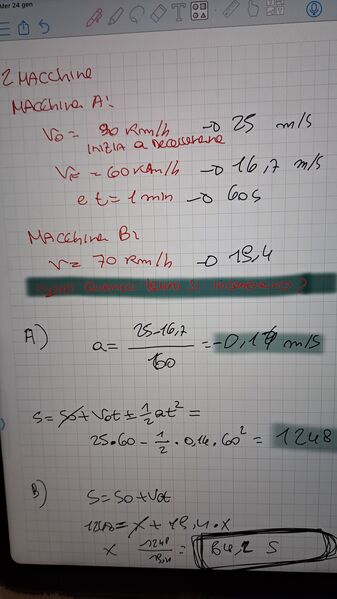 Mer 24 gen
2 MACCHINE
MACCHINA A:
V0 = 90 Km/h → 25 m/s
INIZIA a Decelerare
VF = 60 Km/h → 16,7 m/s
e t = 1 min → 60s
MACCHINA B:
V = 70 Km/h → 19,4
A)
a = 25-16,7 / 60 = -0,14 m/s
S = S0 + V0t ± 1/2 at² =
25•60 - 1/2 • 0,14 • 60² = 1248
B)
S = S0 + V0t
1248 = X + 19,4 • X
X 1248 / 19,4 = 64,2 S